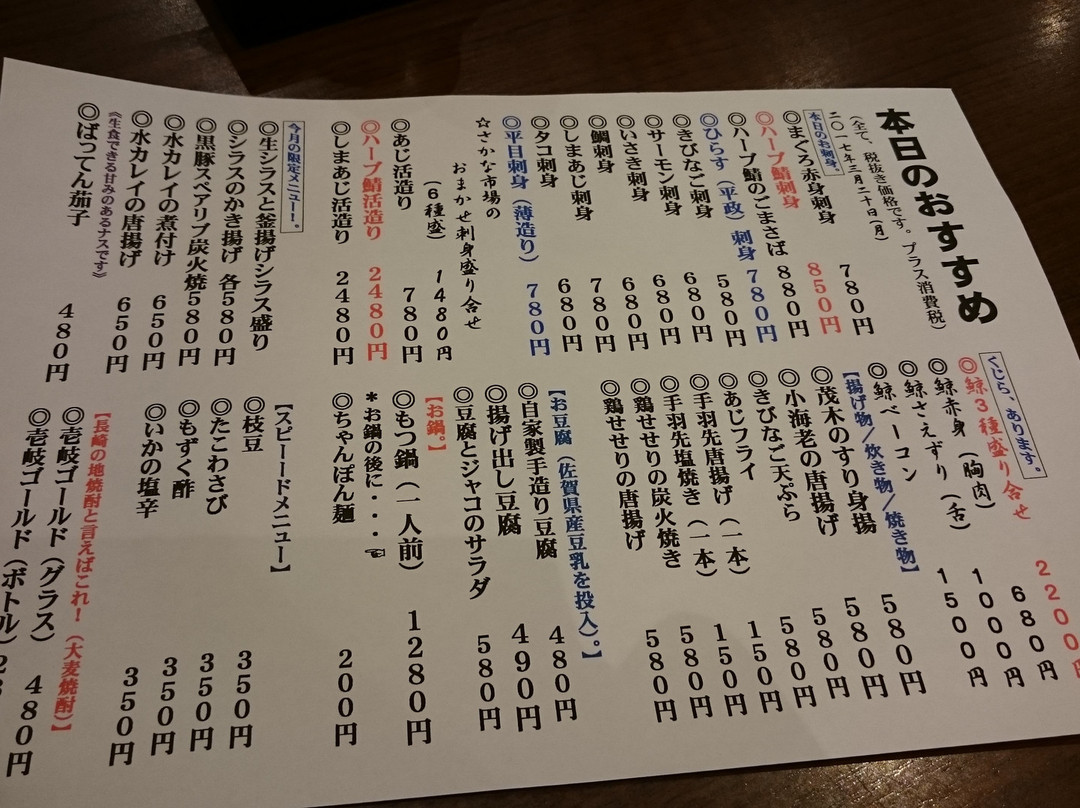 本日のおすすめ
(全て、税抜き価格です。プラス消費税)
二〇一七年三月二十日(月)
本日のお刺身。
◎まぐろ赤身刺身 780円
◎ハーブ鯖刺身 850円
◎ハーブ鯖のごまさば 880円
◎ひらす(平政)刺身 780円
◎きびなご刺身 580円
◎サーモン刺身 680円
◎いさき刺身 680円
◎鯛刺身 680円
◎しまあじ刺身 780円
◎タコ刺身 680円
◎平目刺身(薄造り) 780円
☆さかな市場の
おまかせ刺身盛り合せ
(6種盛) 1480円
◎あじ活造り 780円
◎ハーブ鯖活造り 2480円
◎しまあじ活造り 2480円
今月の限定メニュー!。
◎生シラスと釜揚げシラス盛り
◎シラスのかき揚げ 各580円
◎黒豚スペアリブ炭火焼580円
◎水カレイの煮付け 650円
◎水カレイの唐揚げ 650円
《生食できる甘みのあるナスです》
◎ばってん茄子 480円
くじら、あります。
◎鯨3種盛り合せ 2200円
◎鯨赤身(胸肉) 680円
◎鯨さえずり(舌) 1000円
◎鯨ベーコン 1500円
【揚げ物/炊き物/焼き物】
◎茂木のすり身揚 580円
◎小海老の唐揚げ 580円
◎きびなご天ぷら 580円
◎あじフライ 580円
◎手羽先唐揚げ(一本) 150円
◎手羽先塩焼き(一本) 150円
◎鶏せせりの炭火焼き 580円
◎鶏せせりの唐揚げ 580円
【お豆腐(佐賀県産豆乳を投入)。】
◎自家製手造り豆腐 480円
◎揚げ出し豆腐 490円
◎豆腐とジャコのサラダ 580円
【お鍋。】
◎もつ鍋(一人前) 1280円
*お鍋の後に・・・☜
◎ちゃんぽん麺 200円
【スピードメニュー】
◎枝豆 350円
◎たこわさび 350円
◎もずく酢 350円
◎いかの塩辛 350円
【長崎の地焼酎と言えばこれ!(大麦焼酎)】
◎壱岐ゴールド(グラス) 480円
◎壱岐ゴールド(ボトル)